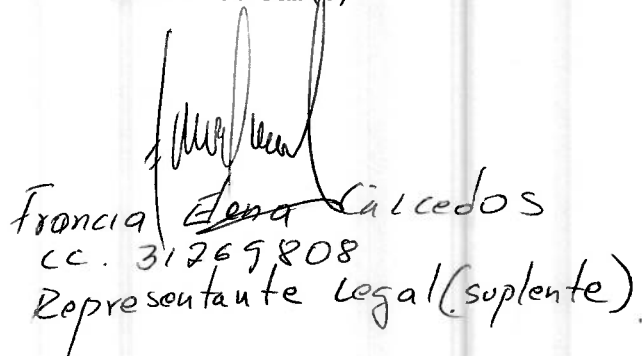 Francia Elena Caicedo S
cc. 31269808
Representante Legal (suplente)